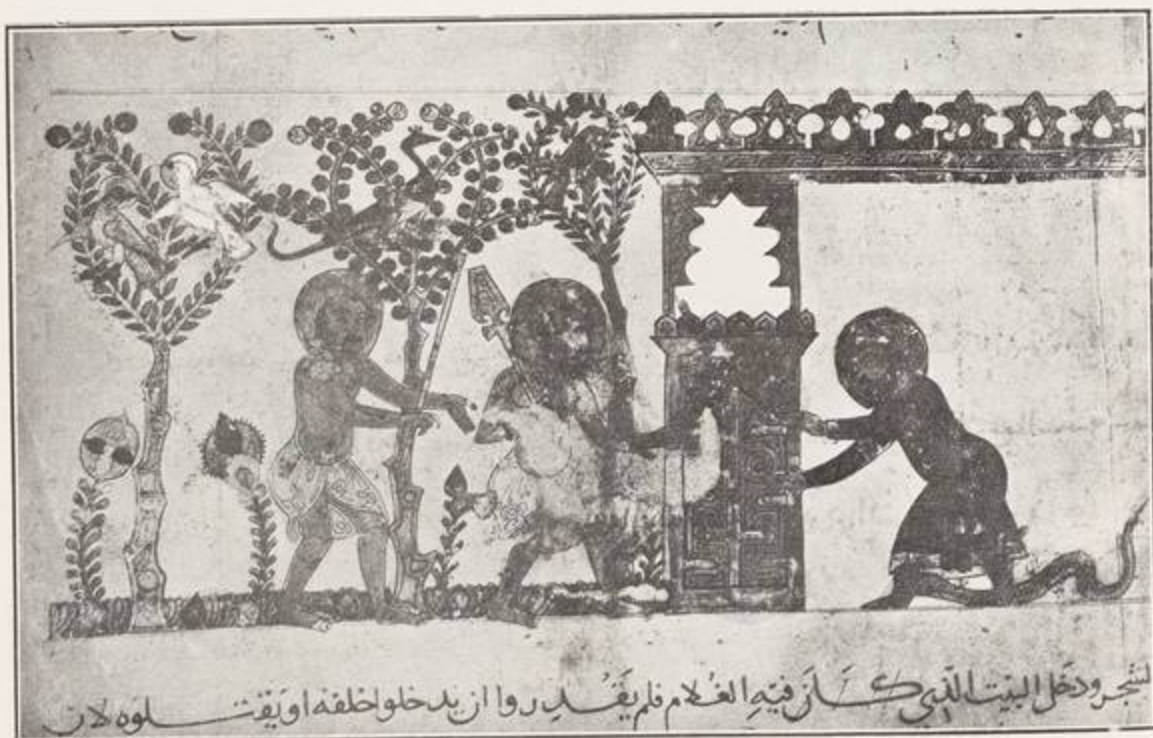 لشجر ودخل البيت الذي كان فيه الغلام فلم يقدروا ان يدخلوا خلفه او يقتلوه لان